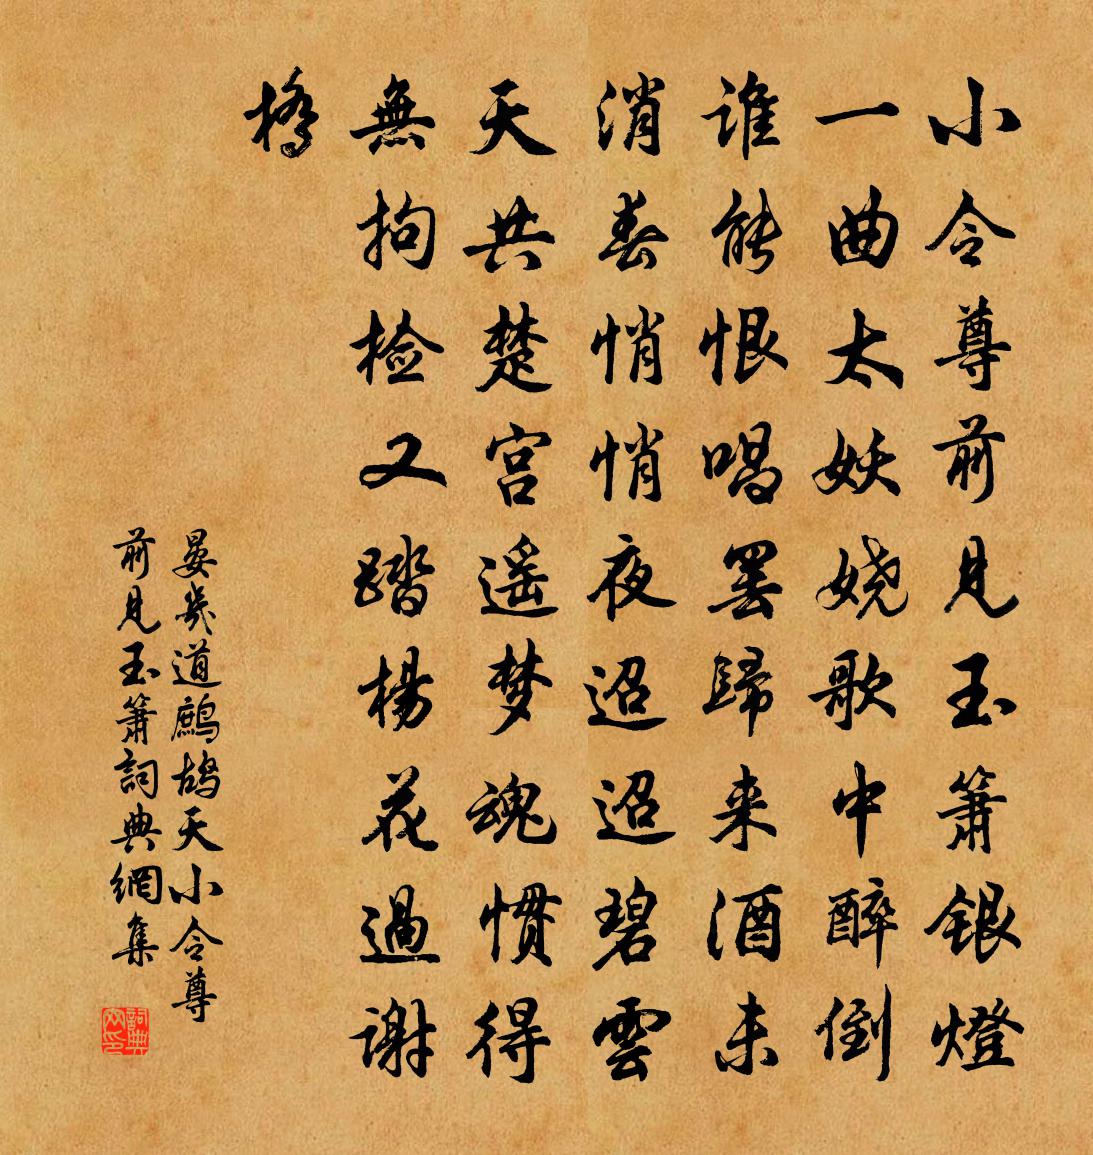 小令尊前見玉簫銀燈
一曲太妖娆歌中醉倒
谁能恨唱罢歸来酒未
消春悄悄夜迢迢碧雲
天共楚宫遥梦魂惯得
無拘检又踏楊花過谢
橋
晏幾道鷓鸪天小令尊
前見玉簫詞典網集
詞典網印